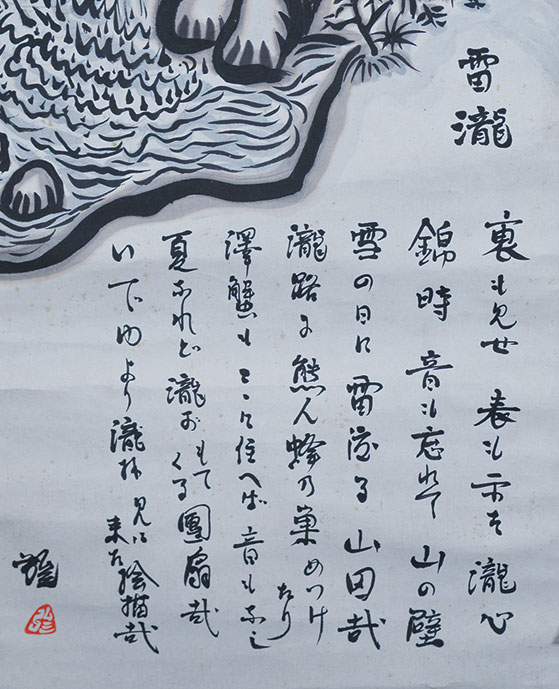 雷瀧
裏も見せ 表も示す 瀧心
錦時 音も忘れて 山の壁
雪の日に 雷渡る 山田哉
瀧路に 熊ん蜂の巣 めつけたり
澤蟹も こゝに住へば 音もなし
夏なれど 瀧おもてくる 團扇哉
いで ゆより 瀧 見に来た 絵描哉